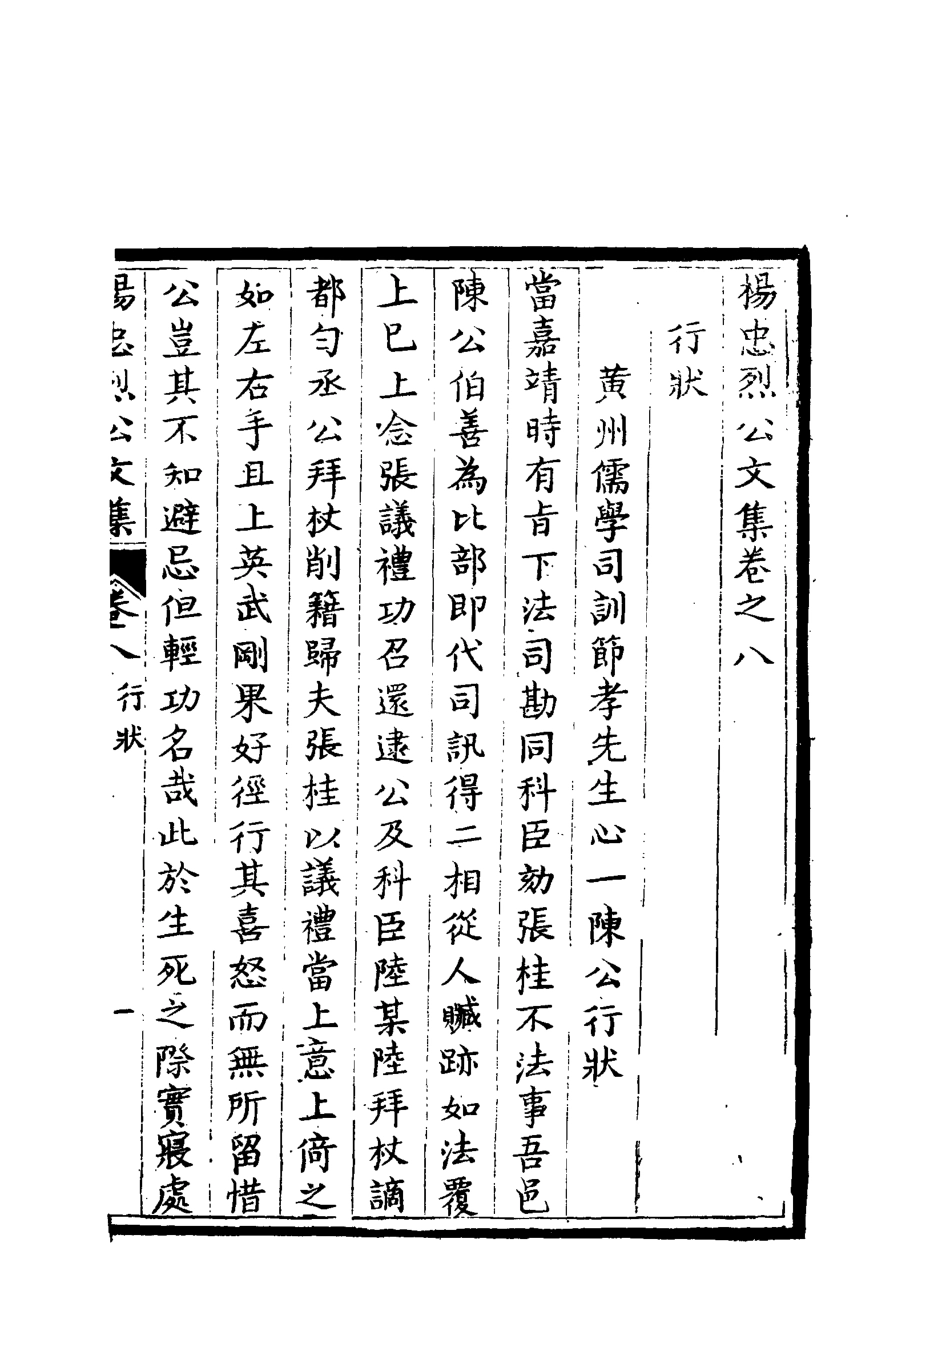 楊忠烈公文集卷之八
行狀
黄州儒學司訓節孝先生心一陳公行狀
當嘉靖時有旨下法司勘同科臣劾張桂不法事吾邑
陳公伯善為比部即代司訊得二相從人贓跡如法覆
上巳上念張議禮功召還逮公及科臣陸某陸拜杖謫
都勻丞公拜杖削籍歸夫張桂以議禮當上意上倚之
如左右手且上英武剛果好徑行其喜怒而無所留惜
公豈其不知避忌但輕功名哉此於生死之際實寢處
楊忠烈公文集
卷八
行狀
一